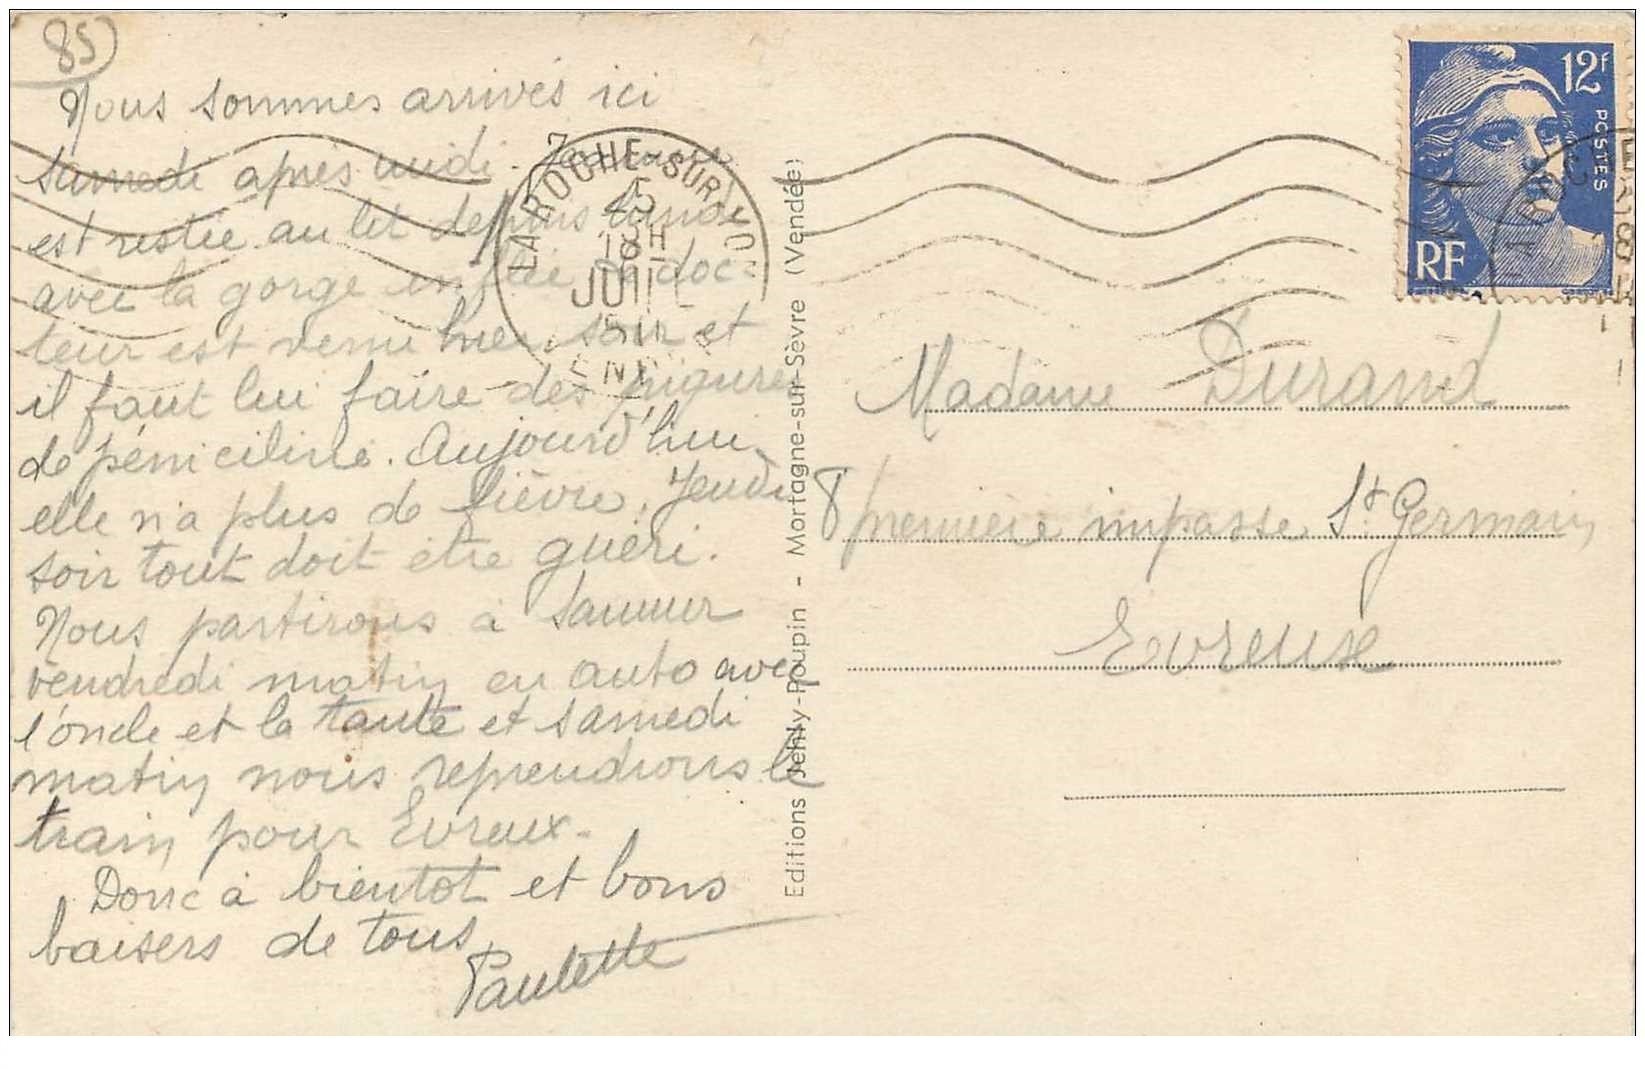 85
Nous sommes arrivés ici
samedi après midi.
est restée au lit depuis lundi
avec la gorge enflée le doc-
teur est venu hier soir et
il faut lui faire des piqures
de péniciline. Aujourd'hui
elle n'a plus de fièvre. Jeudi
soir tout doit être guéri.
Nous partirons à Saumur
vendredi matin en auto avec
l'oncle et la tante et samedi
matin nous reprendrons le
train pour Evreux.
Donc à bientot et bons
baisers de tous
Paulette
LA ROCHE-SUR-YON
18H
JUIL
Editions Jehly-Poupin - Mortagne-sur-Sèvre (Vendée)
12f
POSTES
RF
Madame Durand
8 première impasse St Germain
Evreux